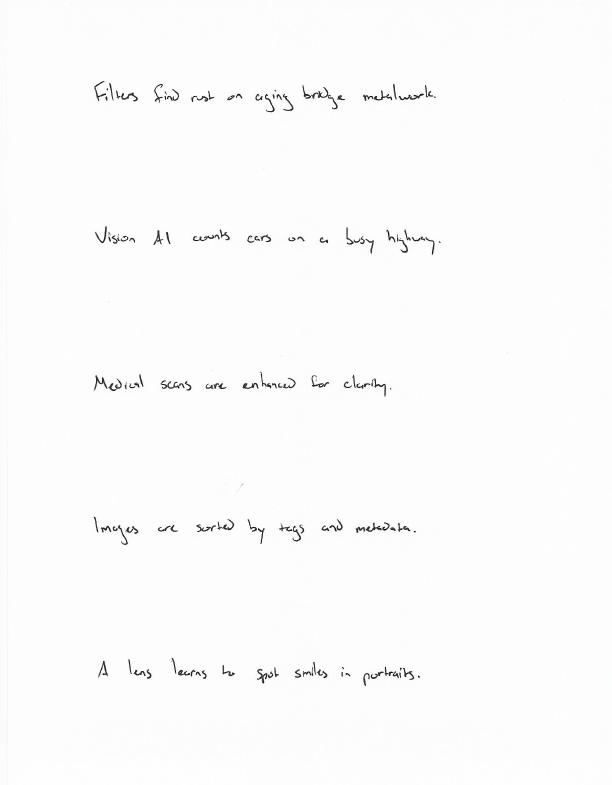 Filters find rust on aging bridge metalwork.
Vision AI counts cars on a busy highway.
Medical scans are enhanced for clarity.
Images are sorted by tags and metadata.
A lens learns to spot smiles in portraits.